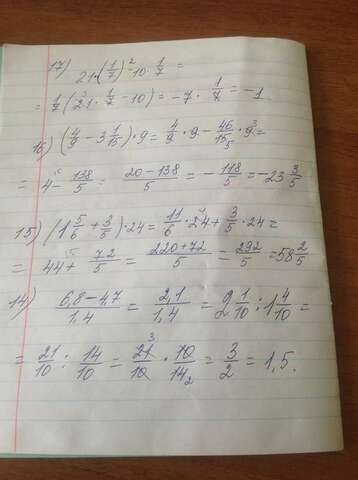 17) 21·(1/7)²-10·1/7=
=1/7(21³·1/7-10)=-7·1/7=-1
16) (4/9-3 1/15)·9=4/9·9-46/15₅·9³=
=4-138/5=20-138/5=-118/5=-23 3/5
15) (1 5/6+3/5)·24=11/6·24+3/5·24=
=44+72/5=220+72/5=292/5=58 2/5
14) 6,8-4,7/1,4=2,1/1,4=2 1/10:1 4/10=
=21/10:14/10=21³/10·10/14₂=3/2=1,5.